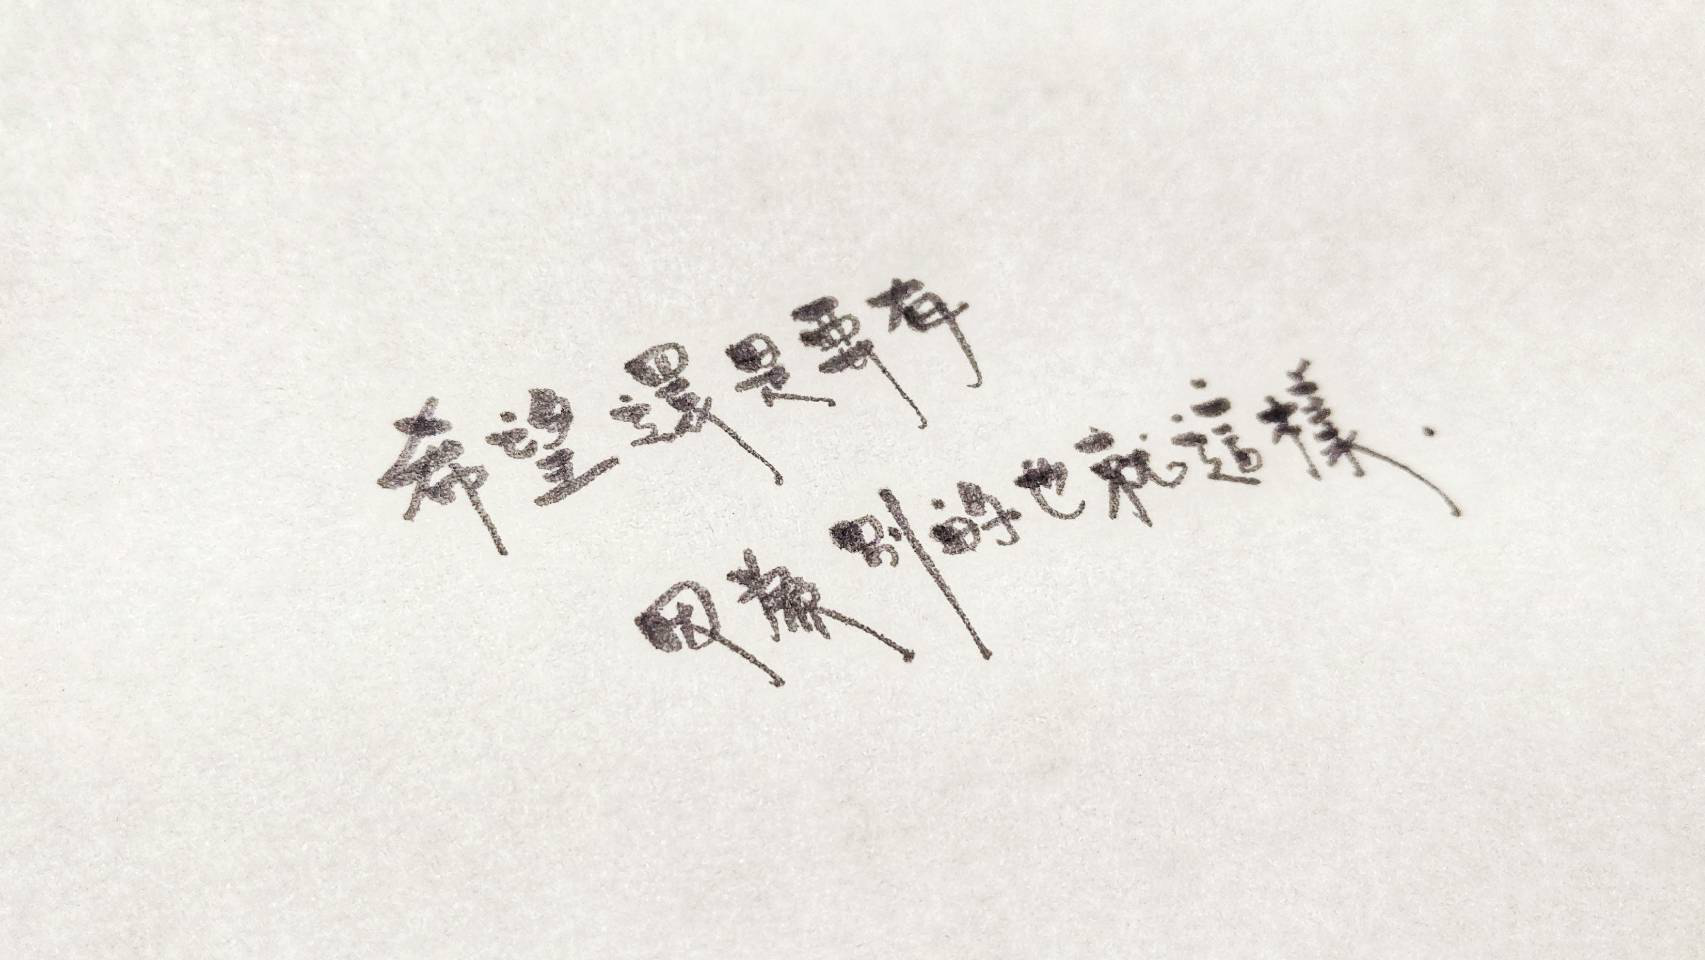 希望還是要有
因為別的也就這樣.